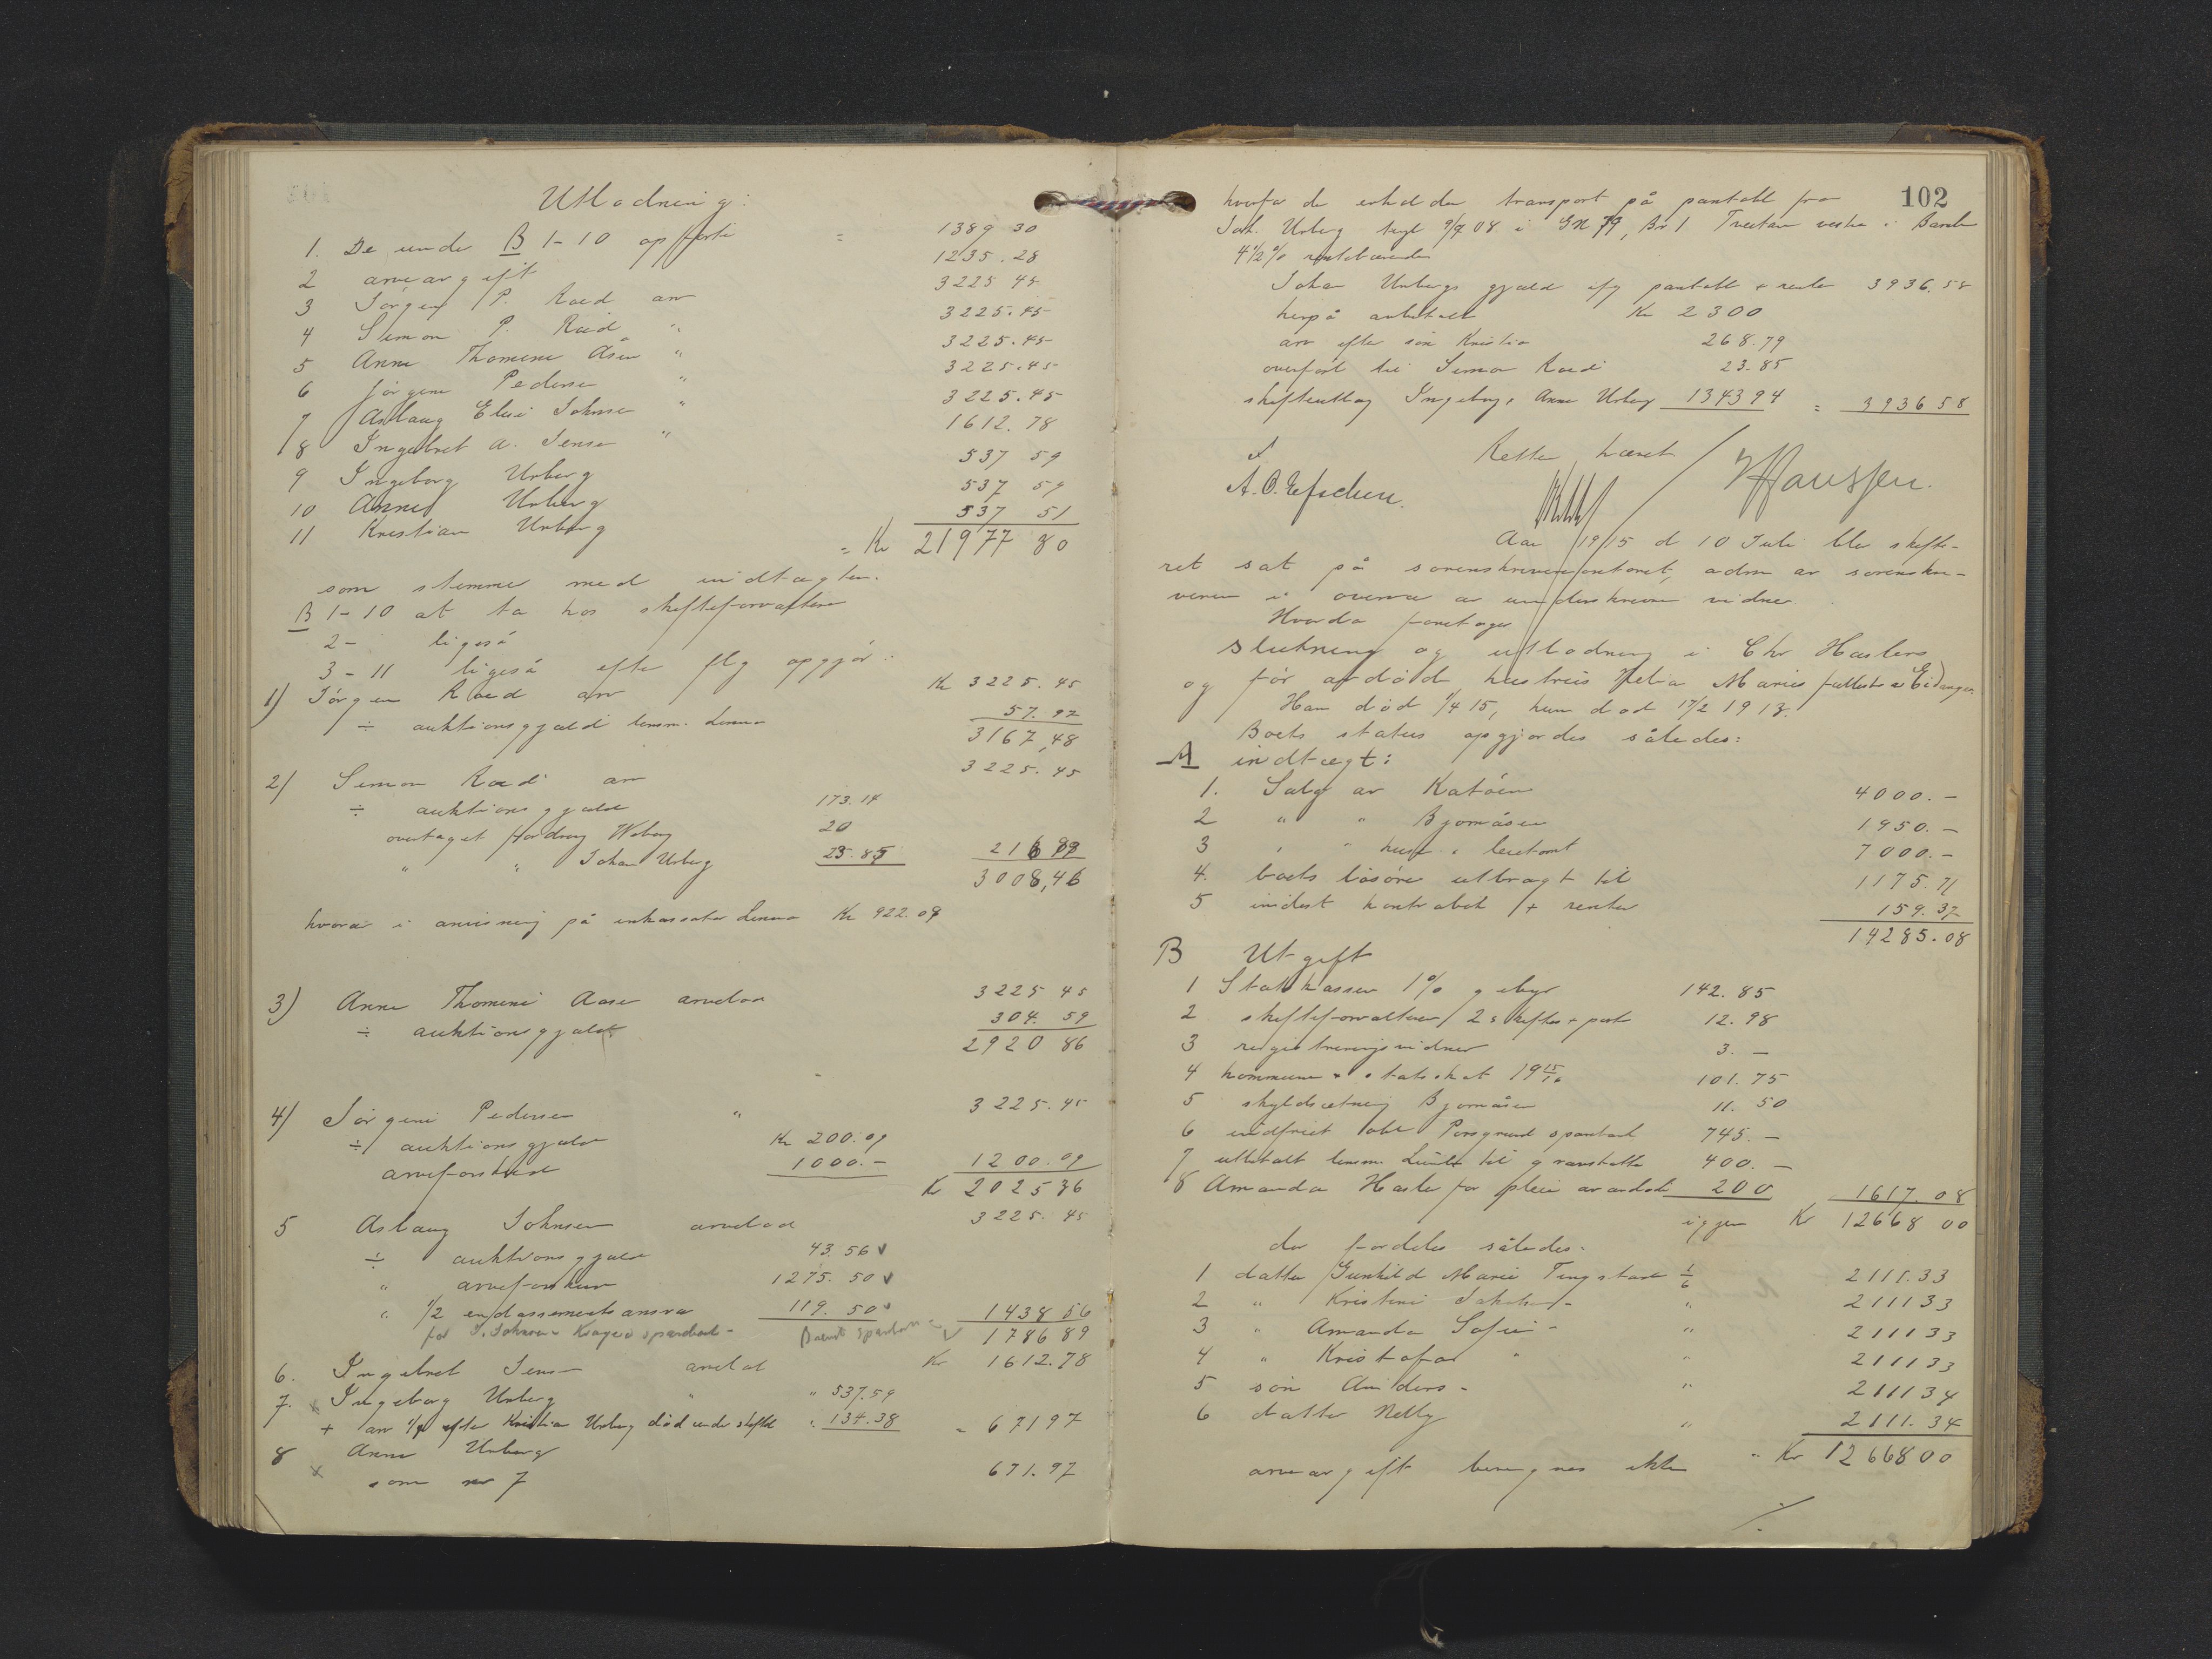 Utlodning:
1. De under B 1-10 opførte = 1389 30
2 arveavgift 1235.28
3 Jørgen P. Roed arv 3225 45
4 Simon P. Roed " 3225.45
5 Anne Thomine Åsen " 3225.45
6 Jørgine Pedersen " 3225.45
7 Aslaug Elise Johnsen " 3225.45
8 Ingebret A. Jensen " 1612.78
9 Ingeborg Urberg 537 59
10 Anne Urberg 537 59
11 Kristian Urberg 537 51
= Kr 21977 80
som stemmer med indtægten.
B 1-10 at ta hos skifteforvalteren
2- ligeså
3-11 ligeså efter flg opgjør:
1) Jørgen Roed arv Kr 3225.45
÷ auktionsgjæld lensm. 57.97
3167,48
2) Simon Roed arv 3225.45
÷ auktionsgjæld 173.14
overtaget fordring Woberg 20
" " Johan Urberg 23.85 216 99
3008,46
hvorav i anvisning på inkassator Kr 922.09
3) Anne Thomine Aasen arvelod 3225 45
÷ auktionsgjæld 304.59
2920 86
4) Jørgine Pedersen " 3225.45
÷ auktionsgjæld Kr 200.09
arveforskud 1000.- 1200.09
Kr 2025 36
5 Aslaug Johnsen arvelod 3225.45
÷ auktionsgjæld 43.56 v
" arveforskud 1275.50 v
" 1/2 endossementsansvar 119.50 v 1438 56
for J. Johnsen Kragerø sparebank - sparebank 1786 89
6. Ingebret Jensen arvelod Kr 1612.78
7. x Ingeborg Urberg " " 537.59
+ arv 1/4 efter Kristian Urberg død under skiftet " 134.38 = 671 97
8 Anne Urberg
x som nr 7 671.97
102
hvorfor de erholder transport på pantobl fra
Joh. Urberg tingl 9/9 08 i GN 79, Br 1 vestre i Bamle
4 1/2 % rentebærende
Johan Urbergs gjæld efg pantobl + renter 3936.58
herpå avbetalt Kr 2300
arv efter søn Kristian 268.79
overført til Simon Roed 23.85
skifteutlæg Ingeborg + Anne Urberg 1343 94 = 3936 58
Retten hævet
Aar 1915 d 10 Juli blev skifte-
ret sat på sorenskriverkontoret, adm av sorenskri-
veren i overvær av underskrevne vidner
Hvorda foretoges
slutning og utlodning i Chr Haslers
og før avdød hustrus Helia Maries fællesbo i Eidanger.
Han død 1/4 15, hun død 17/2 1913.
Boets status opgjordes således:
A indtægt:
1. Salg av Katøen 4000.-
2 " " Bjornåsen 1950.-
3 " " huse 7000.-
4. boets løsøre utbragt til 1175.71
5 indest kontrabok + renter 159.37
14285.08
B Utgift
1 Statskassen 1% gebyr 142.85
2 skifteforvalteren, 2 skifter + porto 12.98
3 registreringsvidner 3.-
4 kommune + statsskat 1915/16 101.75
5 skyldsætning Bjornåsen 11.50
6 indfriet obl Porsgrund sparebank 745.-
7 utbetalt lensm. til gravstøtte 400.-
8 Amanda Hasler for pleie av avdøde 200 1617.08
igjen Kr 12668 00
der fordeles således.
1 datter Gunhild Marie 1/6 2111.33
2 " Kristine Jakobsen - " 2111 33
3 " Amanda Sofie - " 2111 33
4 " Kristofa " " 2111 33
5 søn Anders - " 2111 34
6 datter Nelly " 2111.34
" Kr 12668 00
arveavgift beregnes ikke